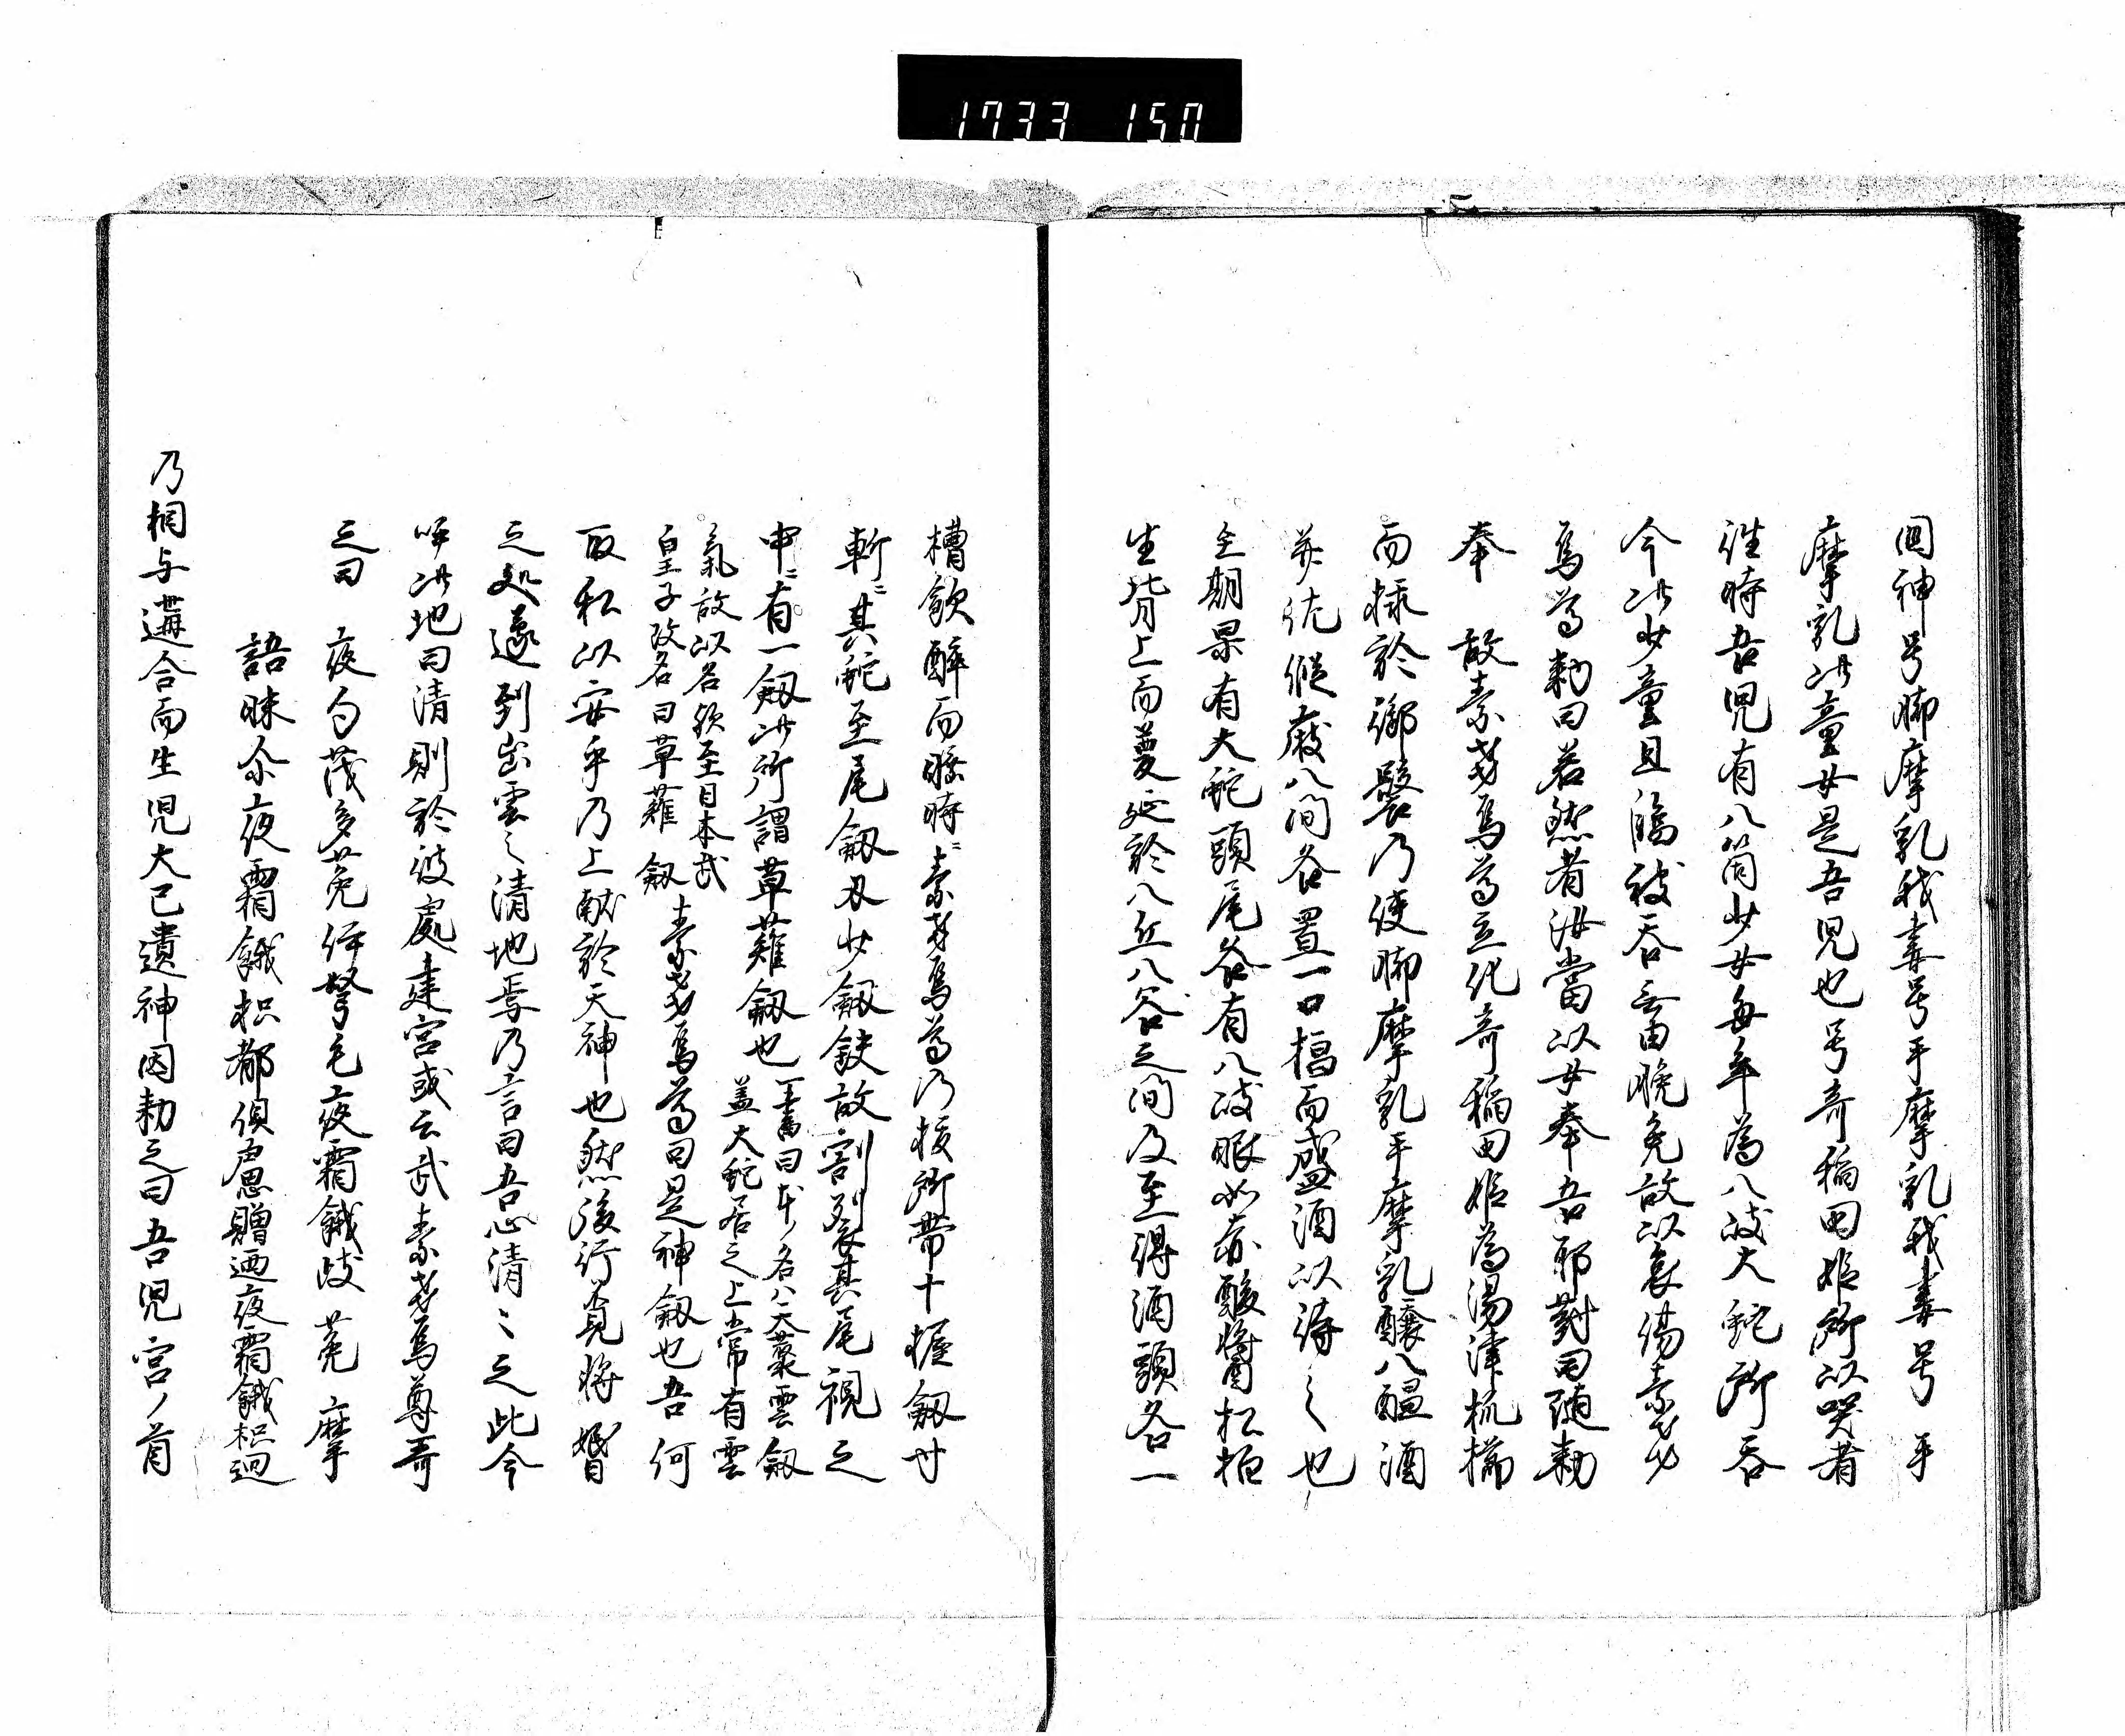 1733 150
囯神号脚摩乳我妻号手摩乳我妻号手
摩乳此童女是吾児也号奇稲田姫所以哭者
往時吾児有八箇少女毎年為八岐大蛇所呑
今此少童且臨被呑無由脱免故以哀傷素戔
烏尊勅曰若然者汝當以女奉吾耶對曰随勅
奉 故素戔烏尊立化奇稲田姫為湯津杜櫛
而挿於御髻乃使脚摩乳手摩乳醸八醞酒
并作假庪八間各置一口槽而盛酒以待之也
至期果有大蛇頭尾各有八岐眼如赤酸醤松栢
生背上而蔓延於八丘八谷之間及至得酒頭各一
槽飲酔而睡時素戔烏尊乃抜所帯十握釼寸
斬其蛇至尾釼刃少釼鈌故割裂其尾視之
中有一釼此所謂草薙釼也 一書曰本名八天藂雲釼
盖大蛇居之上常有雲
氣故以名欤至日本武
皇子改名曰草薙釼 素戔烏尊曰是神釼也吾何
取私以安乎乃上献於天神也然後行覓将婚
之処遂到出雲之清地焉乃言曰吾心清之之此今
呼此地曰清則於彼處建宮或云武素戔烏尊哥
之曰 夜句茂多菟伊弩毛夜霸餓岐菟摩
語昧尒夜霸餓枳都倶慮贈廼夜霸餓枳廻
乃相与遘合而生児大己遺神因勅之曰吾児宮ノ首